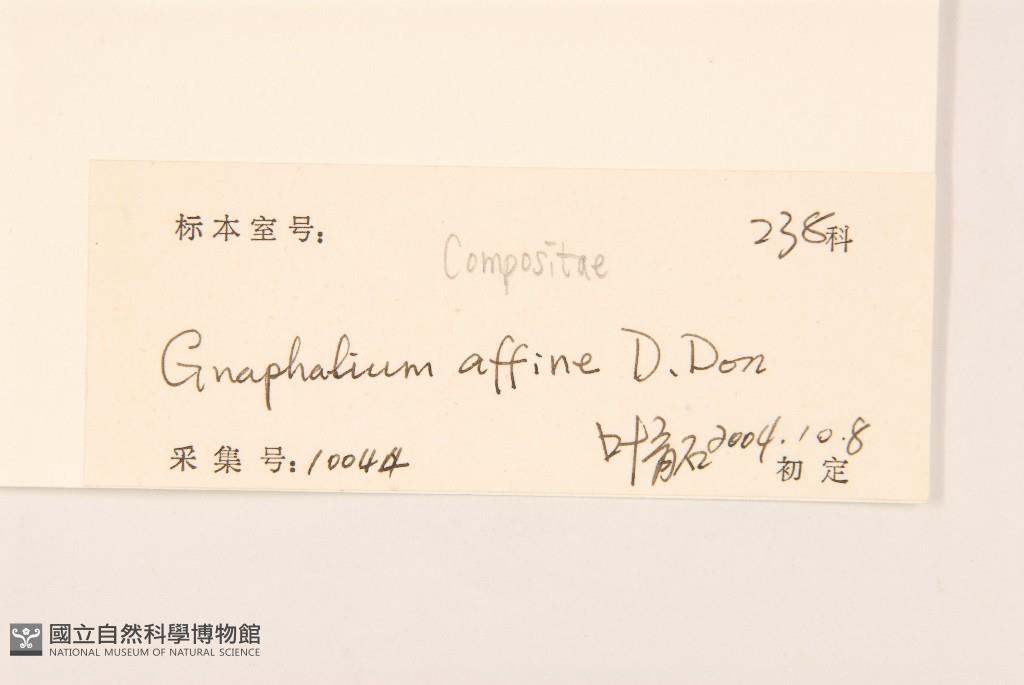 标本室号:
238科
Compositae
Gnaphalium affine D. Don
采集号: 10044
叶育石 2004.10.8
初定
國立自然科學博物館
NATIONAL MUSEUM OF NATURAL SCIENCE